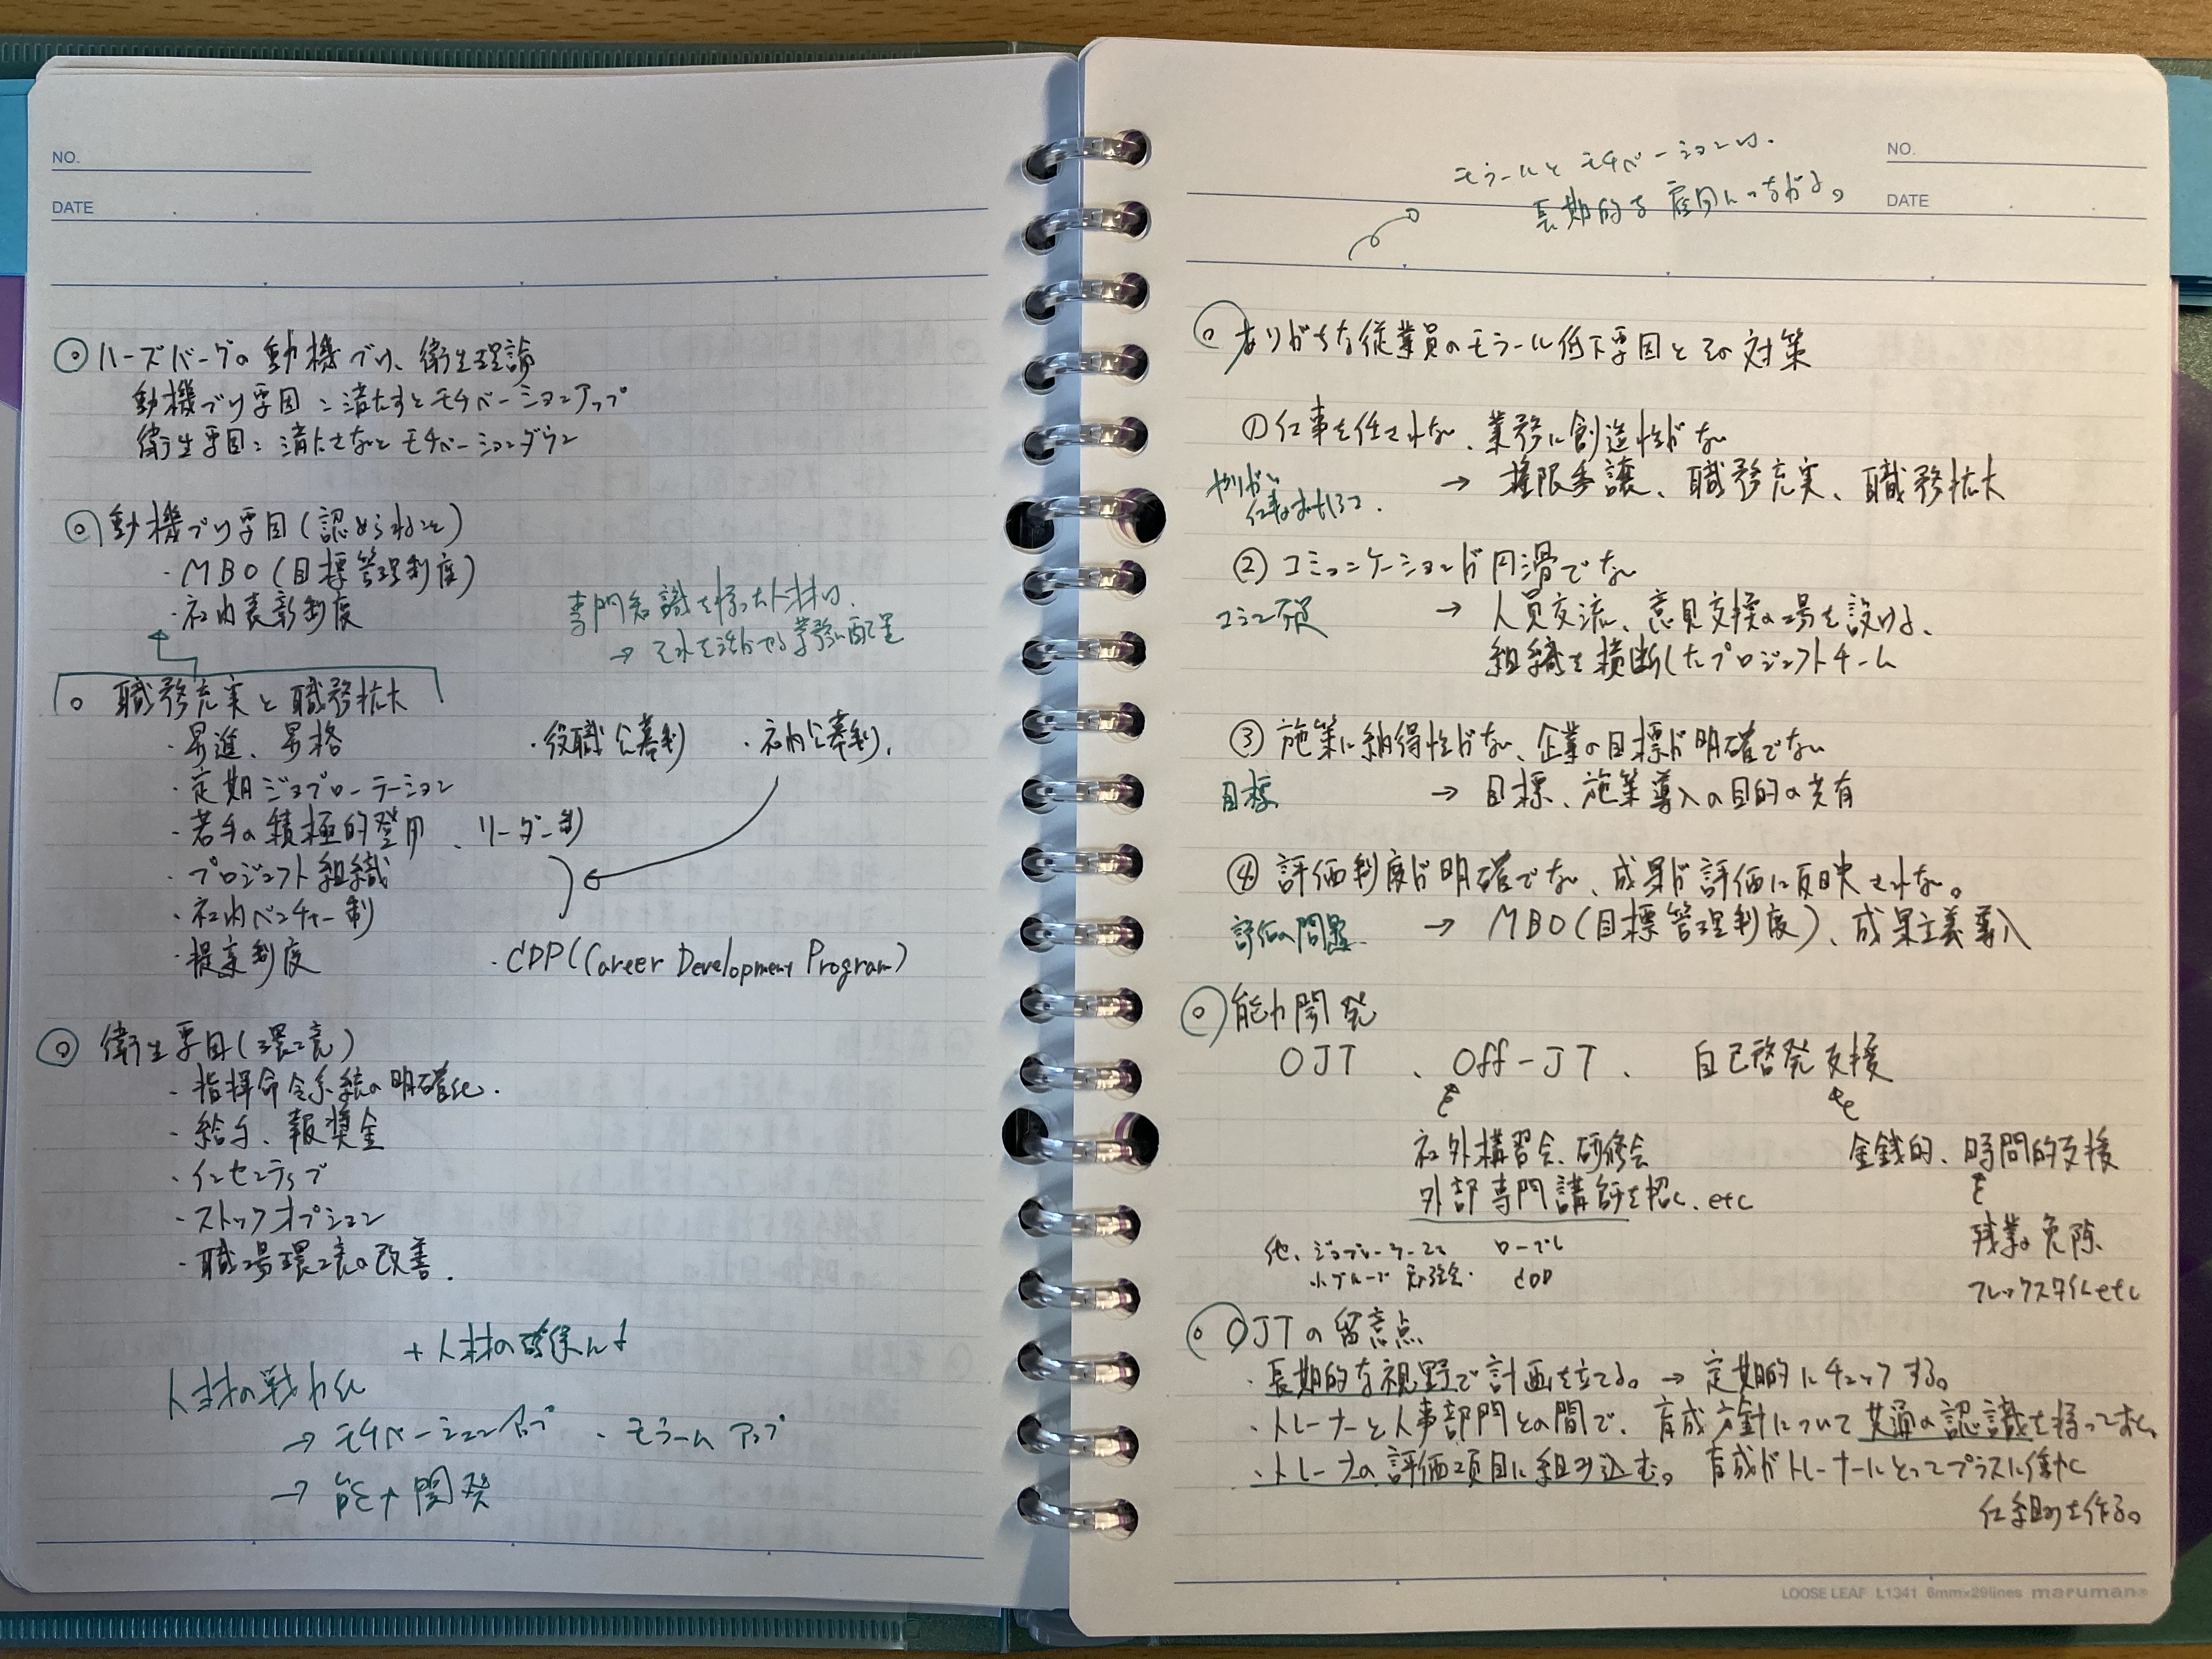 NO.
DATE
ハーズバーグの動機づけ、衛生理論
動機づけ要因：満たすとモチベーションアップ
衛生要因：満たさないとモチベーションダウン
動機づけ要因(認められること)
・MBO(目標管理制度)
・社内表彰制度
専門知識を持った人材は、
→ それを活かせる業務に配置
職務充実と職務拡大
・昇進、昇格 ・役職公募制 ・社内公募制、
・定期ジョブローテーション
・若手の積極的登用、リーダー制
・プロジェクト組織
・社内ベンチャー制
・提案制度 ・CDP(Career Development Program)
衛生要因(環境)
・指揮命令系統の明確化.
・給与、報奨金
・インセンティブ
・ストックオプション
・職場環境の改善.
+人材の確保にも
人材の戦力化
→ モチベーションアップ、モラールアップ
→ 能力開発
NO.
DATE
モラールとモチベーションは、
長期的な雇用につながる。
ありがちな従業員のモラール低下要因とその対策
①仕事を任されない、業務に創造性がない
やりがい
→ 権限委譲、職務充実、職務拡大
② コミュニケーションが円滑でない
コミュ不足 → 人員交流、意見交換の場を設ける、
組織を横断したプロジェクトチーム
③ 施策に納得性がない、企業の目標が明確でない
目標 → 目標、施策導入の目的の共有
④ 評価制度が明確でない、成果が評価に反映されない。
評価の問題 → MBO(目標管理制度)、成果主義導入
能力開発
OJT 、Off-JT、 自己啓発支援
社外講習会、研修会 金銭的、時間的支援
外部専門講師を招く、etc
残業の免除、
フレックスタイムetc
他、ジョブローテーション ロープレ
小グループ勉強会・ CDP
OJTの留意点
・長期的な視野で計画を立てる。→ 定期的にチェックする。
・トレーナーと人事部門との間で、育成方針について共通の認識を持っておく。
・トレーナーの評価項目に組み込む。育成がトレーナーにとってプラスに働く
仕組みを作る。
LOOSE LEAF L1341 6mm×29lines maruman